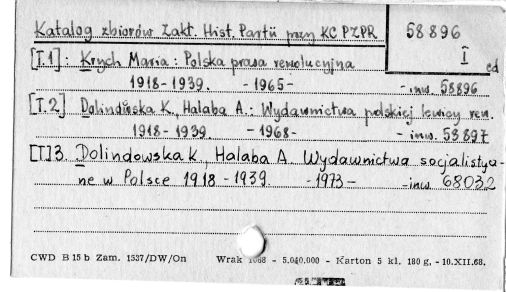 Katalog zbiorów Zakł. Hist. Partii przy KC PZPR 58896
I cd
[T.1]: Krych Maria: Polska prasa rewolucyjna
1918-1939. -1965- -inw. 58896
[T.2] Dolindowska K., Halaba A.: Wydawnictwa polskiej lewicy rew.
1918-1939. -1968- -inw. 58897
[T.]3. Dolindowska K., Halaba A. Wydawnictwa socjalistycz-
ne w Polsce 1918-1939. -1973- -inw. 68032
CWD B 15 b Zam. 1537/DW/On Wrak 1068 - 5.040.000 - Karton 5 kl. 180 g. - 10.XII.68.